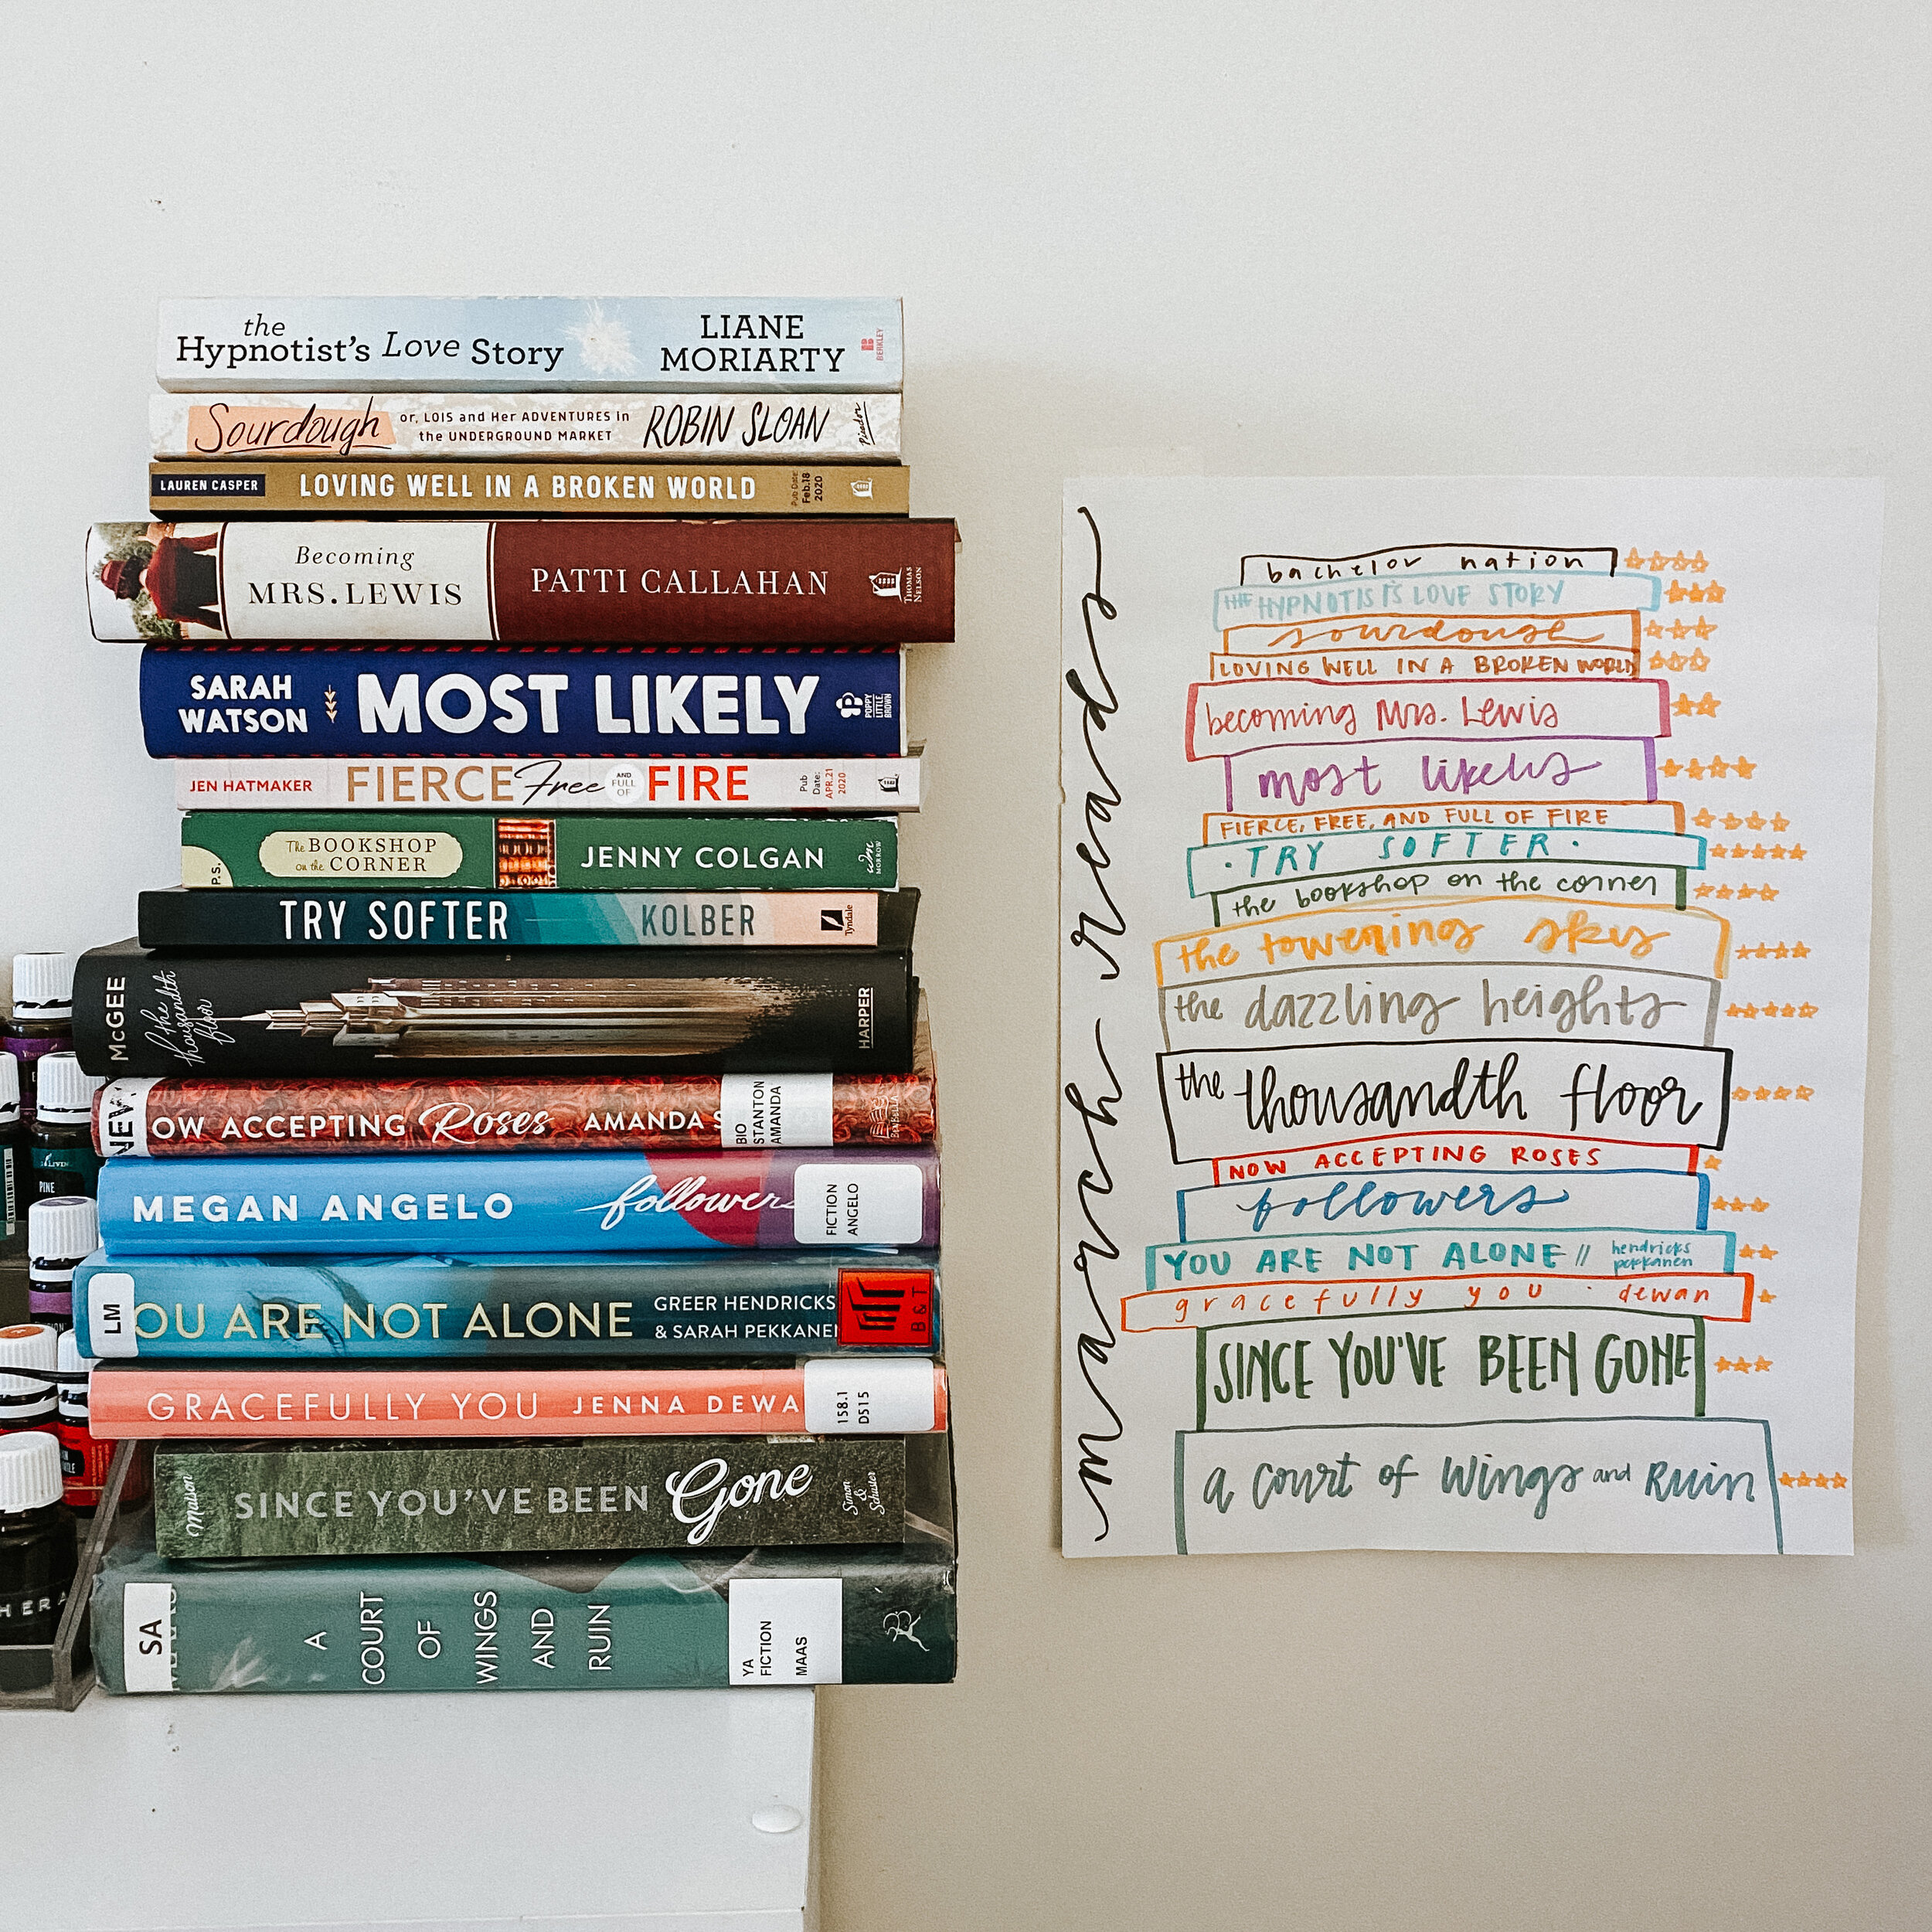 the
Hypnotist's Love Story
LIANE
MORIARTY
BERKLEY
Sourdough
or, LOIS and Her ADVENTURES in
the UNDERGROUND MARKET
ROBIN SLOAN
Picador
LAUREN CASPER
LOVING WELL IN A BROKEN WORLD
Pub Date:
Feb.18
2020
Becoming
MRS. LEWIS
PATTI CALLAHAN
THOMAS
NELSON
SARAH
WATSON
MOST LIKELY
POPPY
LITTLE,
BROWN
JEN HATMAKER
FIERCE Free AND FULL OF FIRE
Pub
Date:
APR.21
2020
P.S.
The BOOKSHOP
on the CORNER
JENNY COLGAN
MORROW
TRY SOFTER
KOLBER
Tyndale
McGEE
the
thousandth
floor
HARPER
NEW
OW ACCEPTING Roses
AMANDA S
BIO
STANTON
AMANDA
MEGAN ANGELO
followers
FICTION
ANGELO
LM
OU ARE NOT ALONE
GREER HENDRICKS
& SARAH PEKKANEN
B & T
GRACEFULLY YOU
JENNA DEWA
158.1
D515
Matson
SINCE YOU'VE BEEN Gone
Simon
&
Schuster
SA
A
COURT
OF
WINGS
AND
RUIN
YA
FICTION
MAAS
PINE
HERA
march reads
bachelor nation
THE HYPNOTIST'S LOVE STORY
sourdough
LOVING WELL IN A BROKEN WORLD
becoming Mrs. Lewis
most likely
FIERCE, FREE, AND FULL OF FIRE
· TRY SOFTER ·
the bookshop on the corner
the towering sky
the dazzling heights
the thousandth floor
NOW ACCEPTING ROSES
followers
YOU ARE NOT ALONE // hendricks
pekkanen
gracefully you · dewan
SINCE YOU'VE BEEN GONE
a court of wings and Ruin